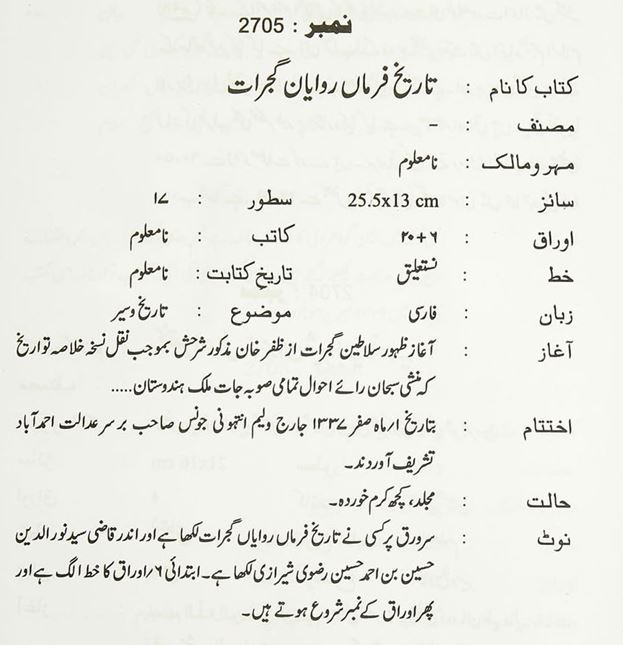 نمبر : 2705
کتاب کا نام : تاریخ فرماں روایان گجرات
مصنف : –
مہر و مالک : نامعلوم
سائز : 25.5x13 cm سطور : ۱۷
اوراق : ۶+۲۰ کاتب : نامعلوم
خط : نستعلیق تاریخ کتابت : نامعلوم
زبان : فارسی موضوع : تاریخ و سیر
آغاز : آغاز ظہور سلاطین گجرات از ظفر خان مذکور شرحش بموجب نقل نسخہ خلاصہ تواریخ
کہ منشی سبحان رائے احوال تمامی صوبہ جات ملک ہندوستان.....
اختتام : بتاریخ ۱/ماہ صفر ۱۳۳۷ جارج ولیم انتہونی جونس صاحب بر سر عدالت احمد آباد
تشریف آوردند۔
حالت : مجلد، کچھ کرم خوردہ۔
نوٹ : سرورق پر کسی نے تاریخ فرماں روایاں گجرات لکھا ہے اور اندر قاضی سید نور الدین
حسین بن احمد حسین رضوی شیرازی لکھا ہے۔ ابتدائی ۶/اوراق کا خط الگ ہے اور
پھر اوراق کے نمبر شروع ہوتے ہیں۔